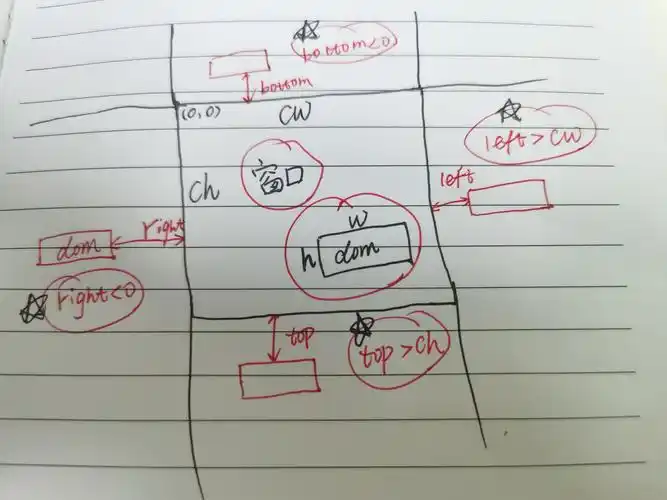 bottom<0
bottom
(0,0)
cw
left>cw
ch
窗口
left
right
w
dom
h
dom
right<0
top
top>ch